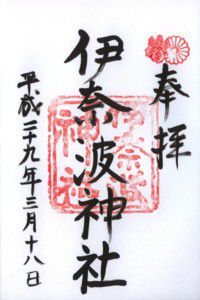 奉拝
伊奈波神社
平成二十九年三月十八日